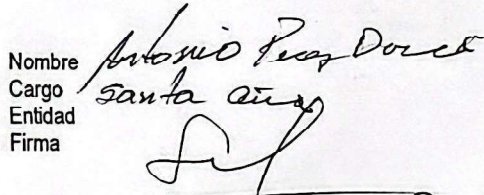 Nombre Antonio Perez
Cargo Santa Ana
Entidad
Firma